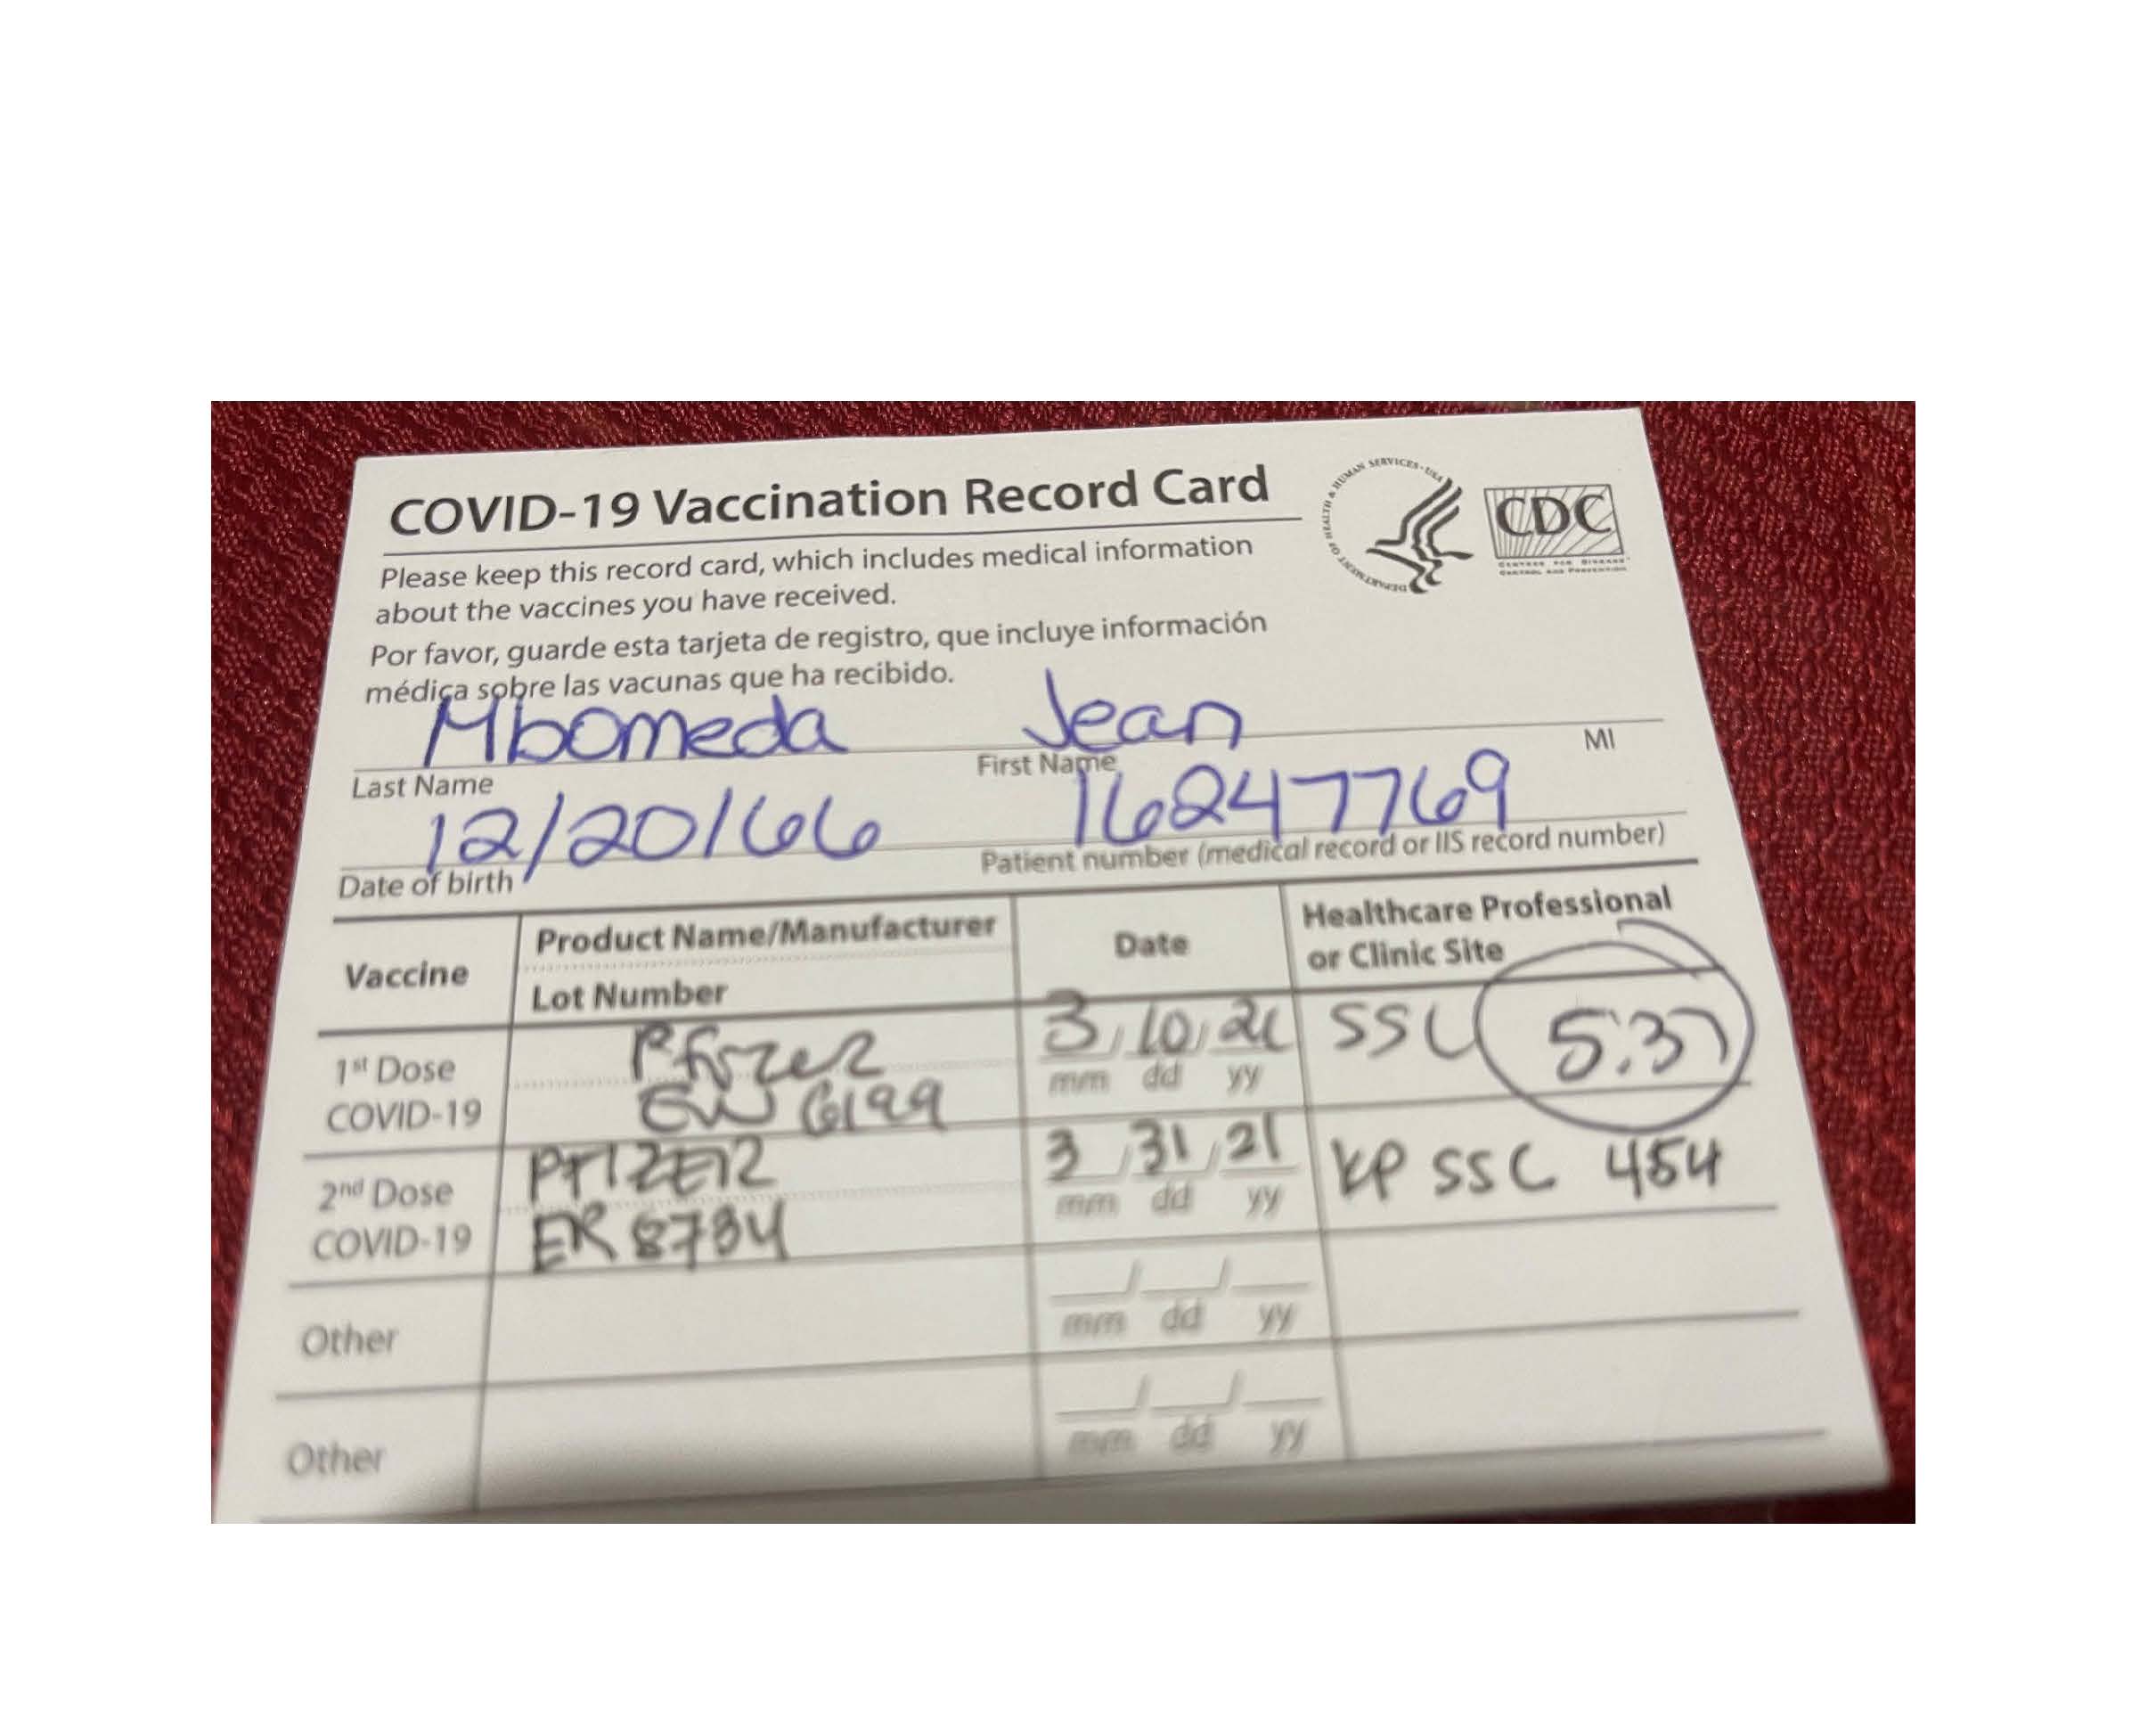 COVID-19 Vaccination Record Card
DEPARTMENT OF HEALTH & HUMAN SERVICES · USA
CDC
CENTERS FOR DISEASE
CONTROL AND PREVENTION
Please keep this record card, which includes medical information
about the vaccines you have received.
Por favor, guarde esta tarjeta de registro, que incluye información
médica sobre las vacunas que ha recibido.
Mbomeda Jean
Last Name First Name MI
12/20/66 16247769
Date of birth Patient number (medical record or IIS record number)
Vaccine Product Name/Manufacturer Date Healthcare Professional
Lot Number or Clinic Site
1st Dose Pfizer 3/10/21 SSC 5:37
COVID-19 6199 mm dd yy
2nd Dose PFIZER 3/31/21 KP SSC 454
COVID-19 ER8734 mm dd yy
Other mm dd yy
Other mm dd yy